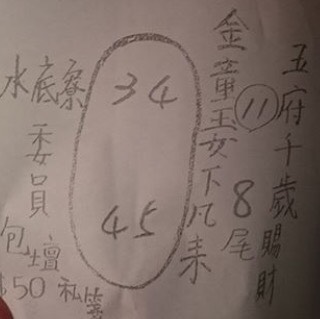 五府千歲賜財
11
8尾
金童玉女下凡来
34
45
水底寮
委員
包壇
$50 私